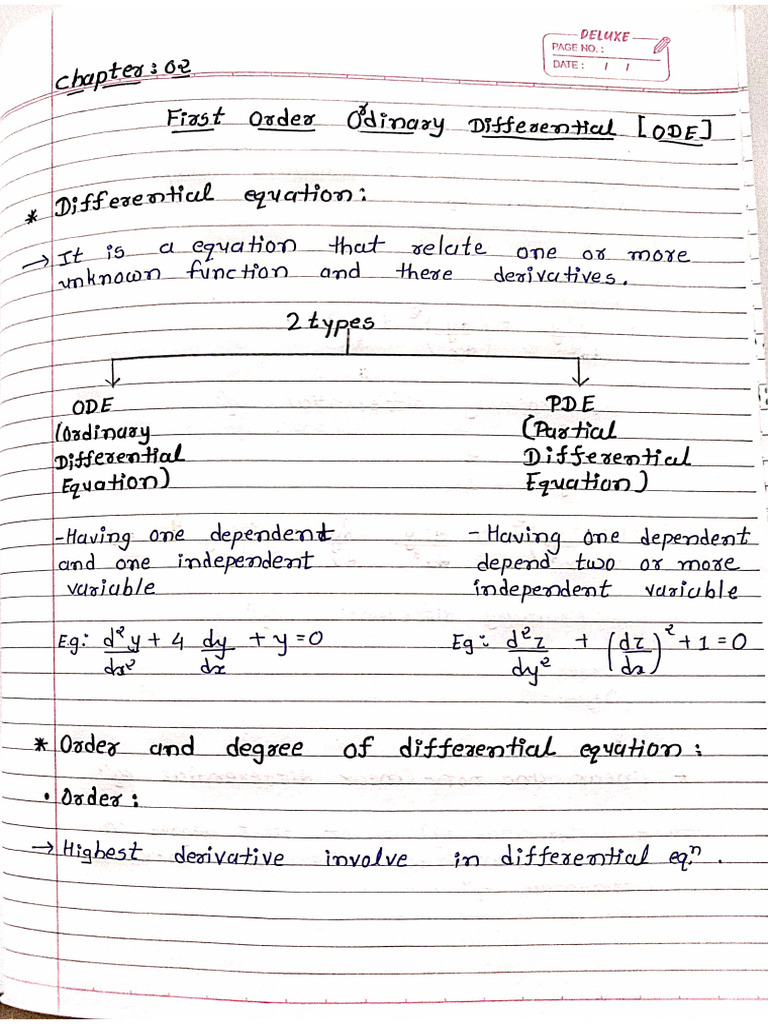 DELUXE
PAGE NO. :
DATE : / /
Chapter : 02
First Order Ordinary Differential [ODE]
* Differential equation :
→ It is a equation that relate one or more
unknown function and there derivatives.
2 types
ODE
(Ordinary
Differential
Equation)
- Having one dependent
and one independent
variable
Eg: d²y/dx² + 4 dy/dx + y = 0
PDE
(Partial
Differential
Equation)
- Having one dependent
depend two or more
independent variable
Eg: d²z/dy² + (dz/dx)² + 1 = 0
* Order and degree of differential equation :
• Order :
→ Highest derivative involve in differential eqⁿ.